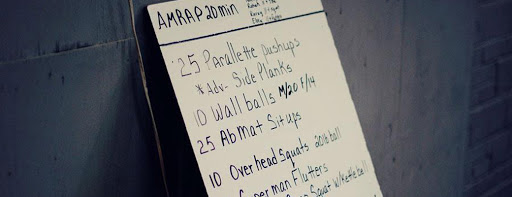 AMRAP 20min
25 Parallette Pushups
*Adv- Side Planks
10 Wall balls M/20 F/14
25 Abmat Situps
10 Overhead Squats 20lb ball
Superman Flutters
Squat w/Kettle ball